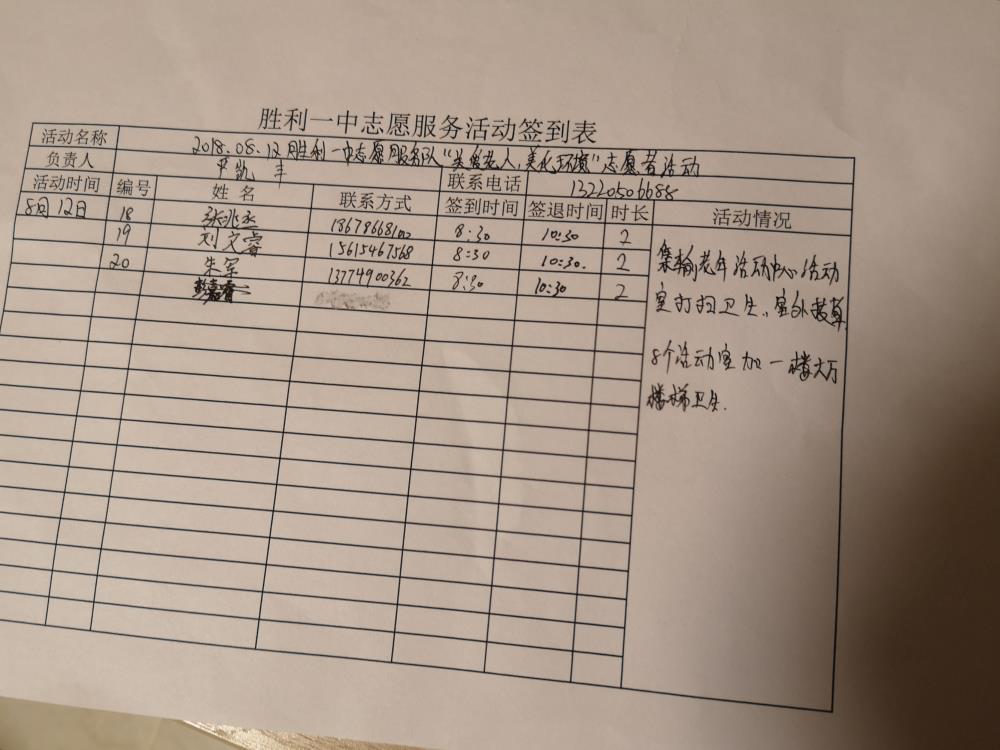 胜利一中志愿服务活动签到表
活动名称 2018.08.12胜利一中志愿服务队“关爱老人,美化环境”志愿者活动
负责人 凯丰 联系电话 13220506688
活动时间 编号 姓名 联系方式 签到时间 签退时间 时长 活动情况
8月12日 18 张兆丞 18678668102 8:30 10:30 2
19 刘文睿 15615467568 8:30 10:30. 2
20 朱军 13774900362 8:30 10:30 2
集输老年活动中心活动
室打扫卫生,室外
8个活动室加一楼大厅
楼梯卫生.